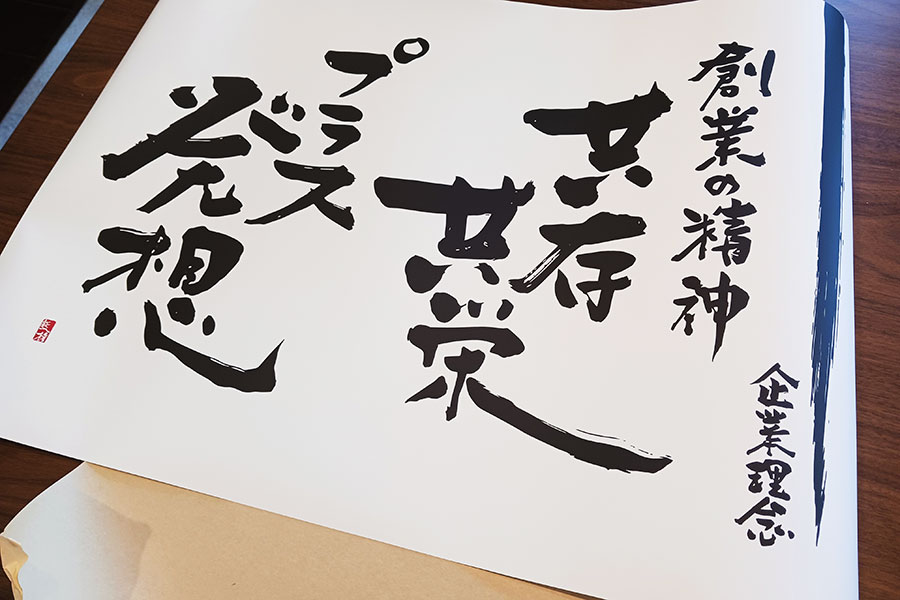 創業の精神
企業理念
共存
共栄
プラス
発想